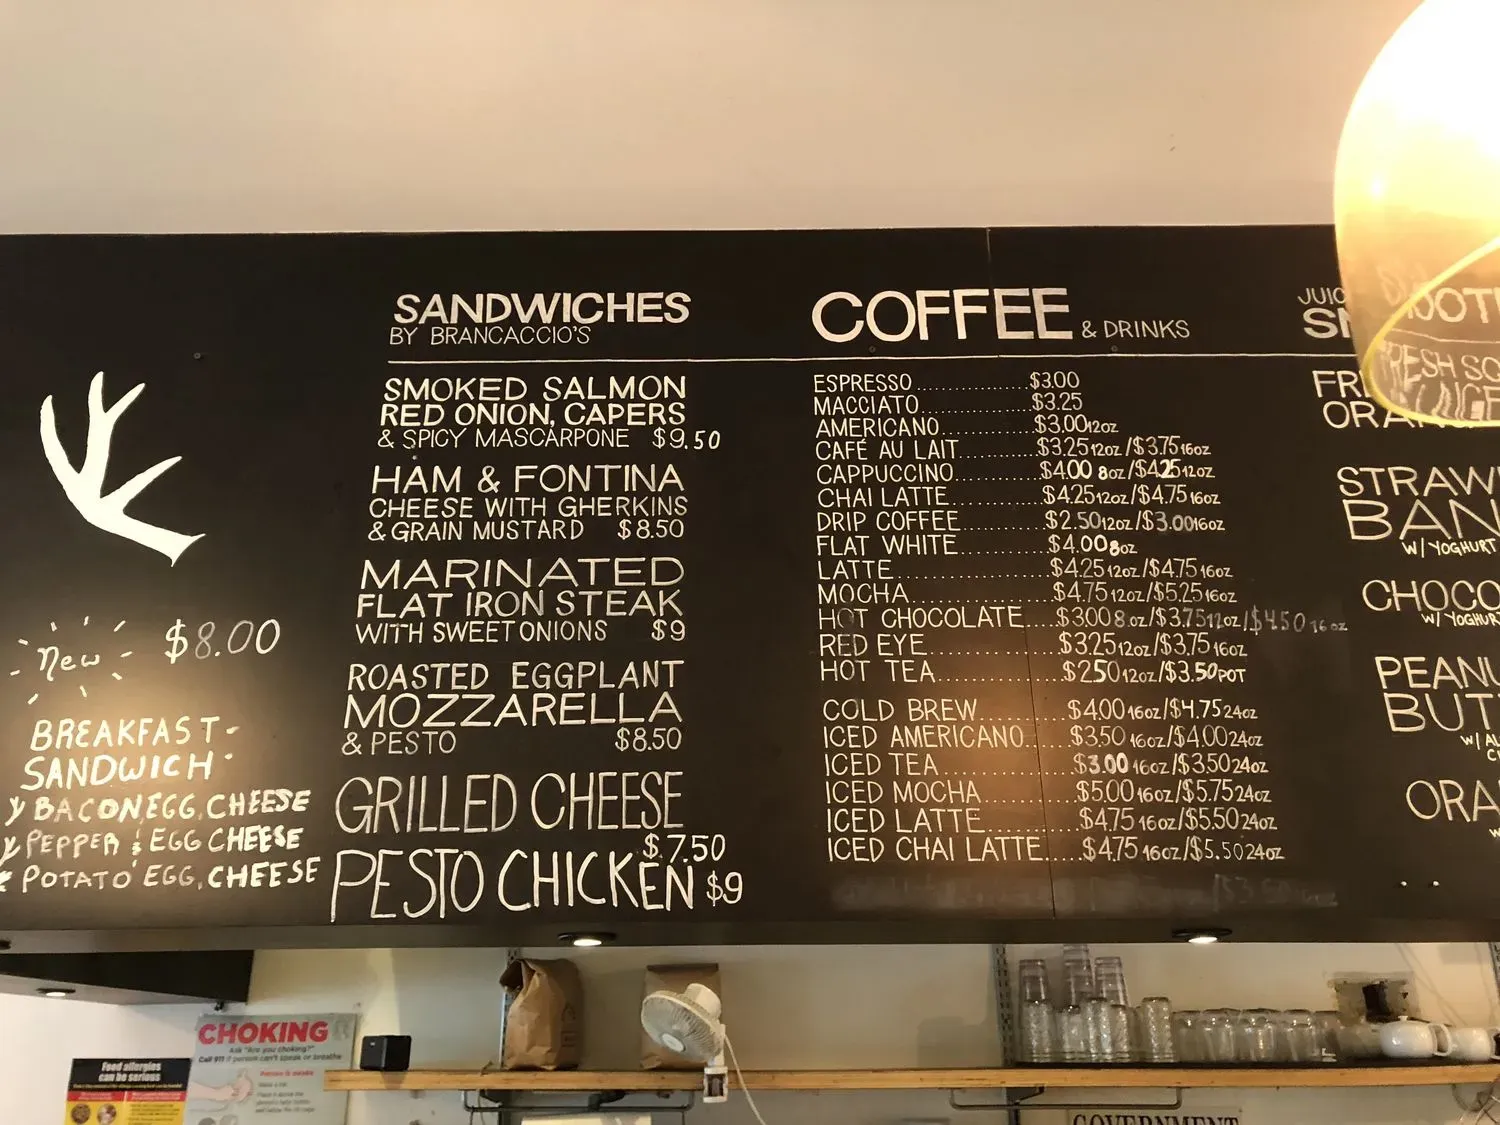 New
$8.00
BREAKFAST
SANDWICH
BACON, EGG, CHEESE
PEPPER & EGG CHEESE
POTATO EGG, CHEESE
SANDWICHES
BY BRANCACCIO'S
SMOKED SALMON
RED ONION, CAPERS
& SPICY MASCARPONE $9.50
HAM & FONTINA
CHEESE WITH GHERKINS
& GRAIN MUSTARD $8.50
MARINATED
FLAT IRON STEAK
WITH SWEET ONIONS $9
ROASTED EGGPLANT
MOZZARELLA
& PESTO $8.50
GRILLED CHEESE
$7.50
PESTO CHICKEN $9
COFFEE & DRINKS
ESPRESSO................$3.00
MACCIATO................$3.25
AMERICANO...............$3.00 12oz
CAFÉ AU LAIT...........$3.25 12oz/$3.75 16oz
CAPPUCCINO.............$4.00 8oz/$4.25 12oz
CHAI LATTE..............$4.25 12oz/$4.75 16oz
DRIP COFFEE.............$2.50 12oz/$3.00 16oz
FLAT WHITE..............$4.00 8oz
LATTE...................$4.25 12oz/$4.75 16oz
MOCHA...................$4.75 12oz/$5.25 16oz
HOT CHOCOLATE....$3.00 8oz/$3.75 12oz/$4.50 16oz
RED EYE.................$3.25 12oz/$3.75 16oz
HOT TEA.................$2.50 12oz/$3.50 POT
COLD BREW............$4.00 16oz/$4.75 24oz
ICED AMERICANO......$3.50 16oz/$4.00 24oz
ICED TEA...............$3.00 16oz/$3.50 24oz
ICED MOCHA............$5.00 16oz/$5.75 24oz
ICED LATTE............$4.75 16oz/$5.50 24oz
ICED CHAI LATTE.....$4.75 16oz/$5.50 24oz
W/ YOGHURT
W/ YOGHURT
CHOKING
Ask "Are you choking?"
Call 911 if person can't speak or breathe
Food allergies
can be serious
GOVERNMENT